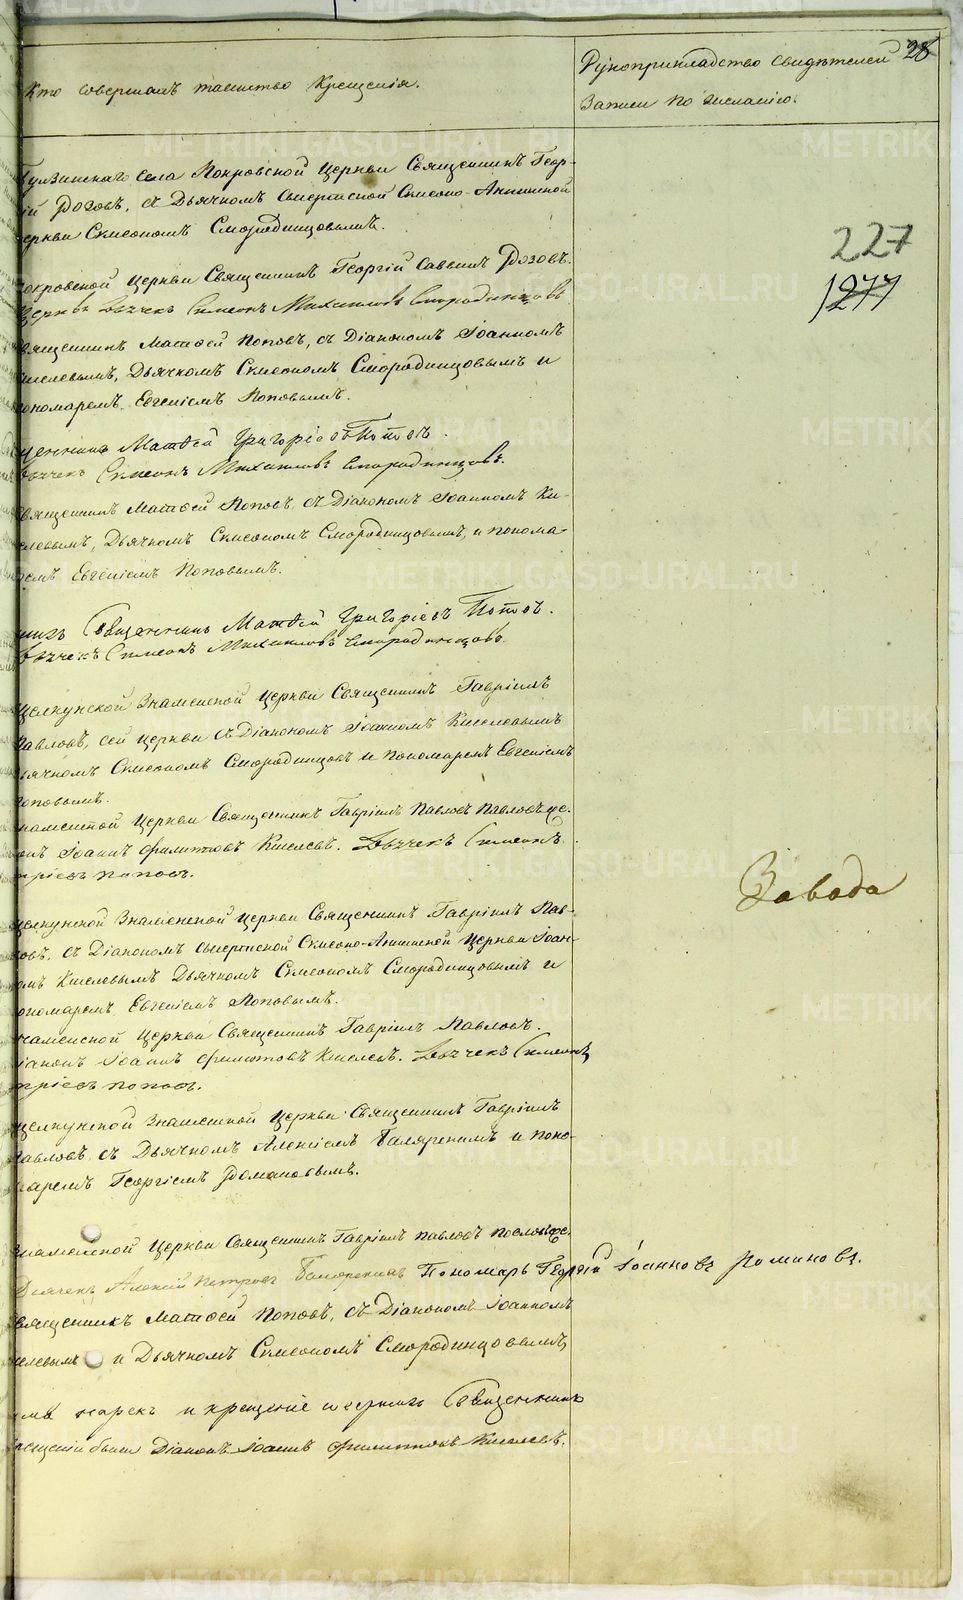 Кто совершалъ таинство Крещенія.
Рукоприкладство свидѣтелей 28
Записи по желанію.
села Покровской Церкви Священникъ Геор-
гій Розовъ, съ Дьячкомъ Сысертской Симеоно-Аннинской
Церкви Симеономъ Смородинцовымъ.
227
1277
Покровской Церкви Священникъ Георгій Саввинъ Розовъ.
Дьячекъ Симеонъ Михаиловъ Смородинцовъ
Священникъ Матѳей Поповъ, съ Діакономъ Іоанномъ
Киселевымъ, Дьячкомъ Симеономъ Смородинцовымъ и
пономаремъ Евгеніемъ Поповымъ.
Священникъ Матѳей Григоріевъ Поповъ.
Дьячекъ Симеонъ Михаиловъ Смородинцовъ.
Священникъ Матѳей Поповъ, съ Діакономъ Іоанномъ Ки-
селевымъ, Дьячкомъ Симеономъ Смородинцовымъ, и понома-
ремъ Евгеніемъ Поповымъ.
Священникъ Матѳей Григоріевъ Поповъ.
Дьячекъ Симеонъ Михаиловъ Смородинцовъ
Щелкунской Знаменской Церкви Священникъ Гавріилъ
Павловъ, сей церкви съ Діакономъ Іоанномъ Киселевымъ
Дьячкомъ Симеономъ Смородинцовъ и пономаремъ Евгеніемъ
Поповымъ.
Знаменской Церкви Священникъ Гавріилъ Павловъ
Іоаннъ Филиповъ Киселевъ. Дьячекъ Симеонъ
поповъ.
Завода
Щелкунской Знаменской Церкви Священникъ Гавріилъ Пав-
ловъ, съ Діакономъ Сысертской Симеоно-Аннинской Церкви Іоан-
номъ Киселевымъ Дьячкомъ Симеономъ Смородинцовымъ и
пономаремъ Евгеніемъ Поповымъ.
Знаменской Церкви Священникъ Гавріилъ Павловъ.
Діаконъ Іоаннъ Филиповъ Киселевъ. Дьячекъ Симеонъ
поповъ.
Щелкунской Знаменской Церкви Священникъ Гавріилъ
Павловъ, съ Дьячкомъ Алексіемъ и поно-
маремъ Георгіемъ Романовымъ.
Знаменской Церкви Священникъ Гавріилъ Павловъ
Дьячекъ Алексѣй Петровъ Пономарь Георгій Іоанновъ Романовъ.
Священникъ Матѳей Поповъ, съ Діакономъ Іоанномъ
Киселевымъ и Дьячкомъ Симеономъ Смородинцовымъ
нарекъ и крещеніе Священникъ
были Діаконъ Іоаннъ Филиповъ Киселевъ.
METRIKI.GASO-URAL.RU